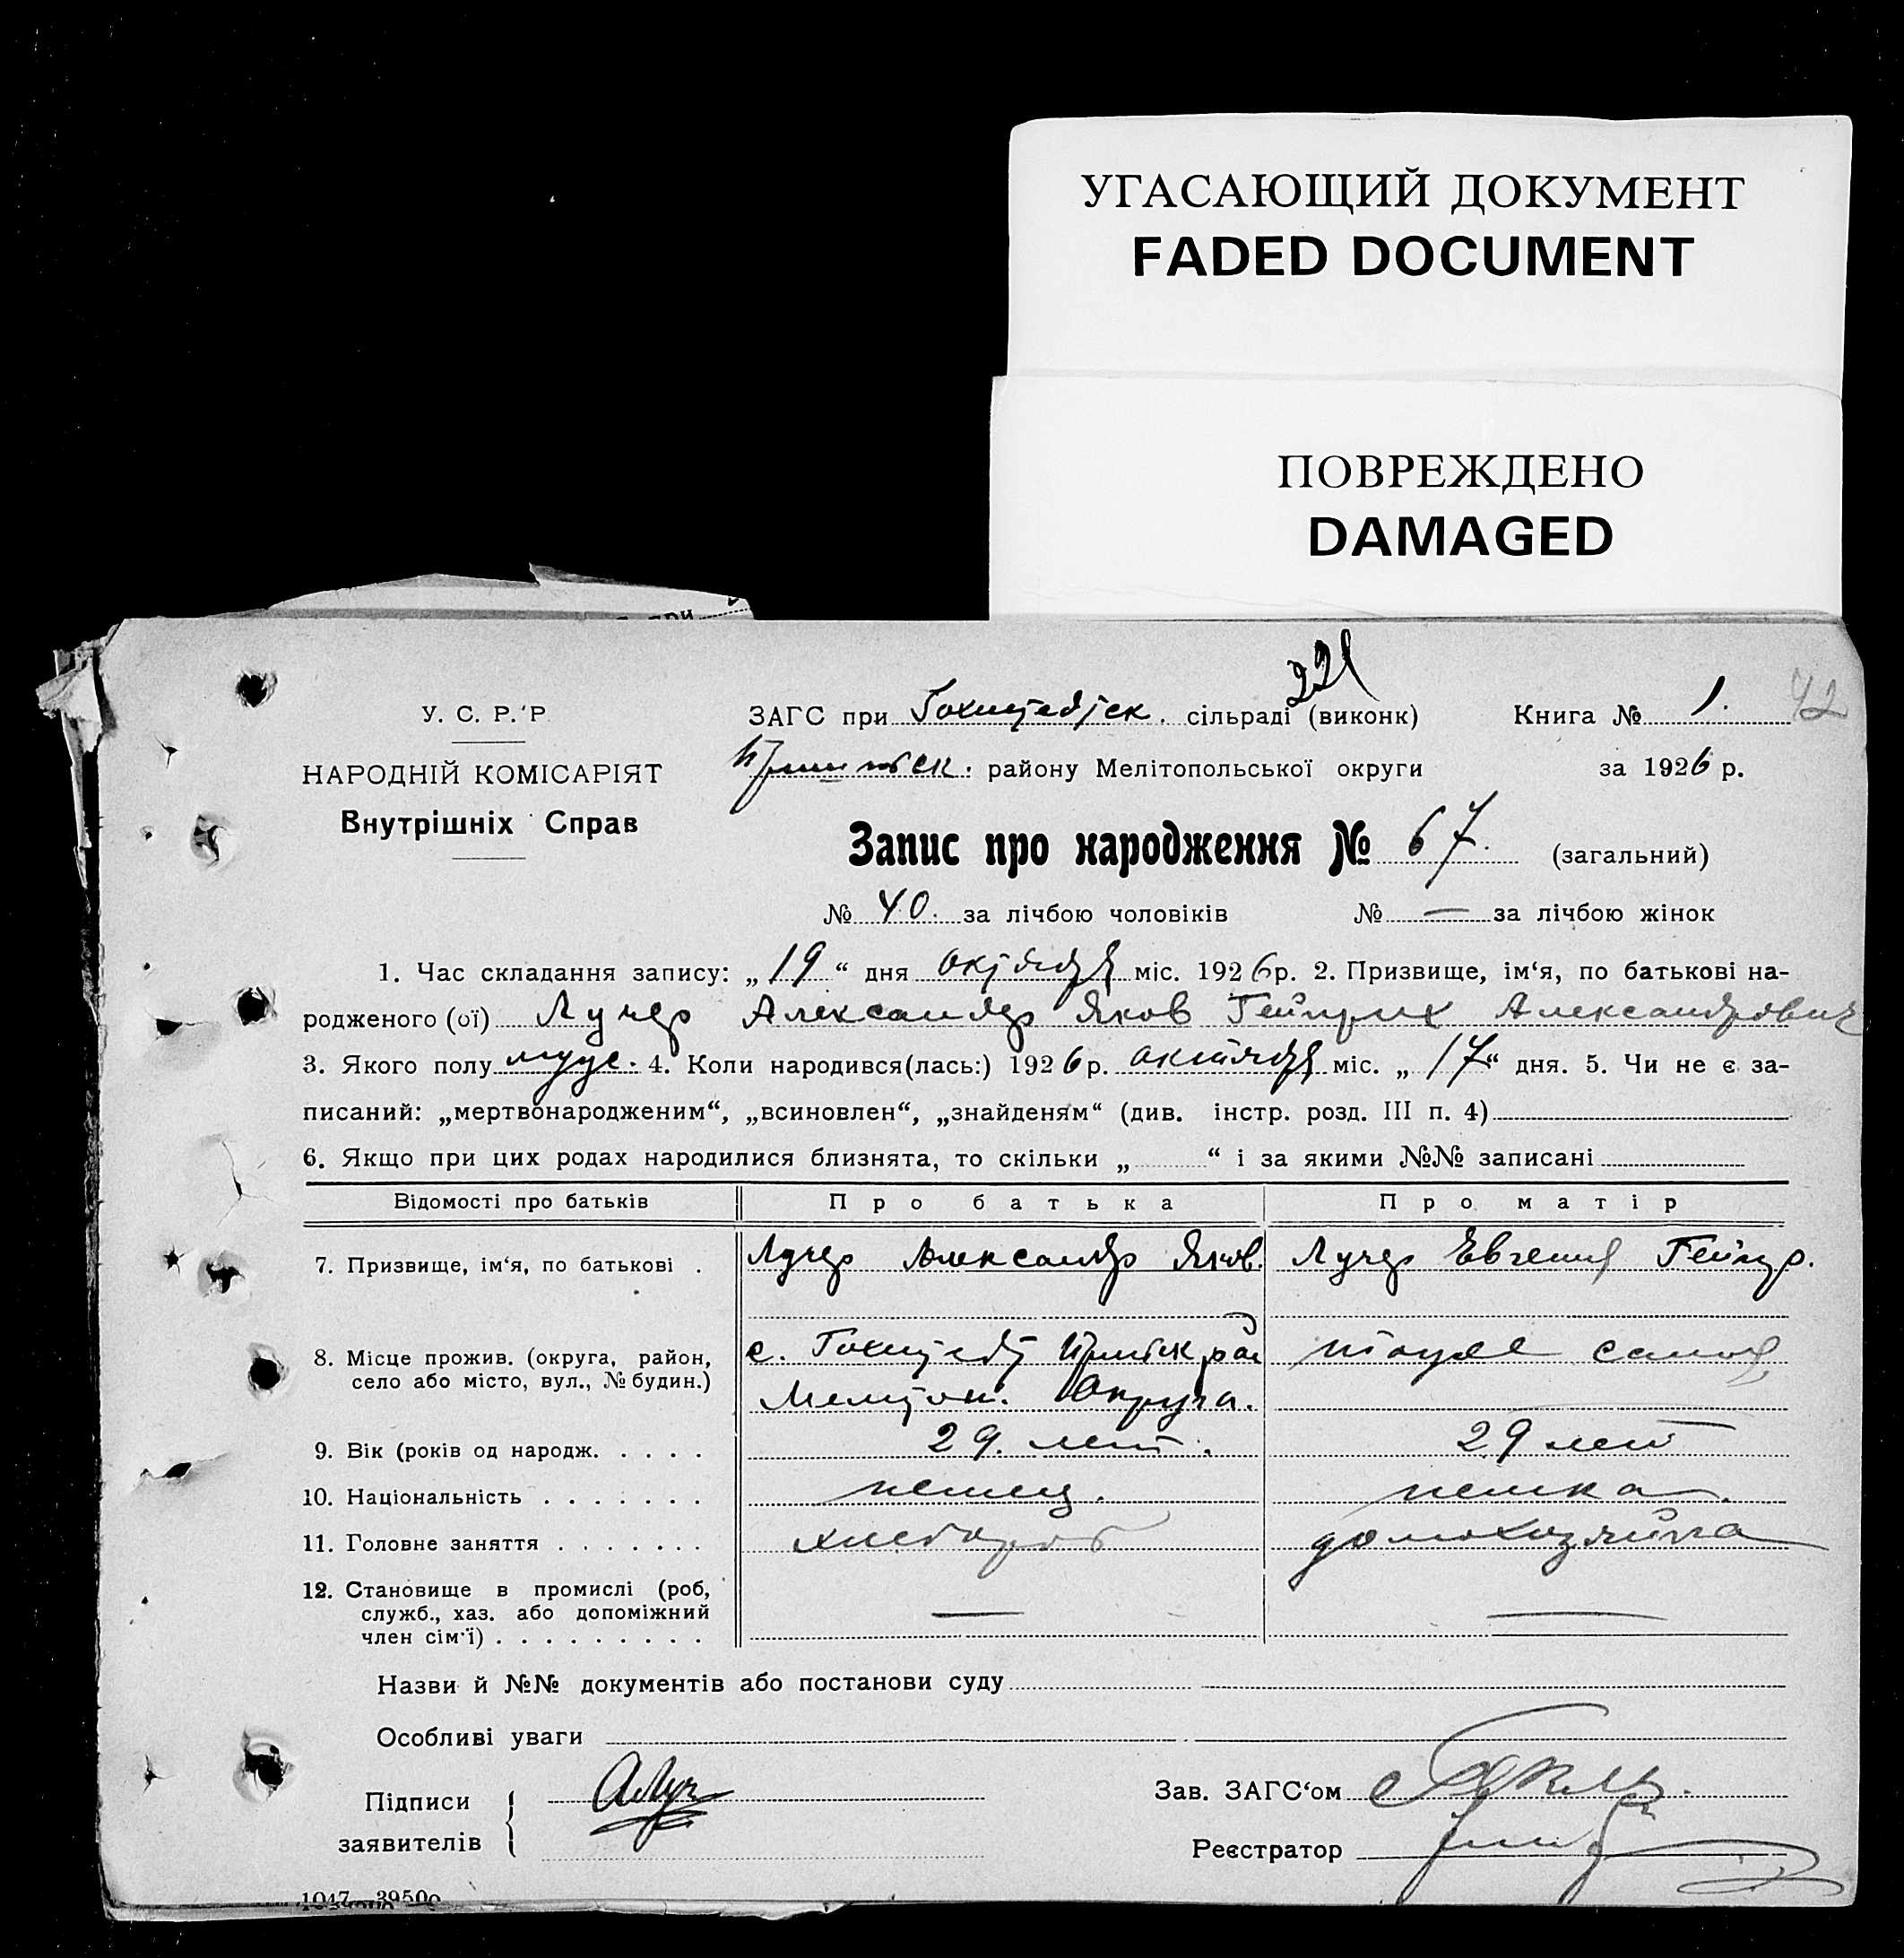 УГАСАЮЩИЙ ДОКУМЕНТ
FADED DOCUMENT
ПОВРЕЖДЕНО
DAMAGED
при
221
У. С. Р. Р
ЗАГС при Гохштедтск. сільраді (виконк) Книга № 1. 42
НАРОДНІЙ КОМІСАРІЯТ
Пришибск. району Мелітопольської округи за 1926 р.
Внутрішніх Справ
Запис про народження № 67. (загальний)
№ 40. за лічбою чоловіків № — за лічбою жінок
1. Час складання запису: „19“ дня октября міс. 1926 р. 2. Призвище, ім‘я, по батькові на-
родженого (ої) Лучер Александр Яков Гейнрих Александрович
3. Якого полу муж. 4. Коли народився(лась:) 1926 р. октября міс. „17“ дня. 5. Чи не є за-
писаний: „мертвонародженим“, „всиновлен“, „знайденям“ (див. інстр. розд. III п. 4)
6. Якщо при цих родах народилися близнята, то скільки „ “ і за якими №№ записані
Відомості про батьків Про батька Про матір
7. Призвище, ім‘я, по батькові . Лучер Александр Яков. Лучер Евгения Гейнр.
8. Місце прожив. (округа, район, с. Гохштедт Пришибск рай тоже самое
село або місто, вул., № будин.) Мелитоп. Округа.
9. Вік (років од народж. . . . . 29. лет. 29 лет
10. Національність . . . . . . . немец. немка.
11. Головне заняття . . . . . . . хлебороб домохозяйка
12. Становище в промислі (роб, — —
служб., хаз. або допоміжний
член сім‘ї) . . . . . . . . .
Назви й №№ документів або постанови суду
Особливі уваги
Підписи АЛуч Зав. ЗАГС‘ом
заявителів Реєстратор
1047 39500